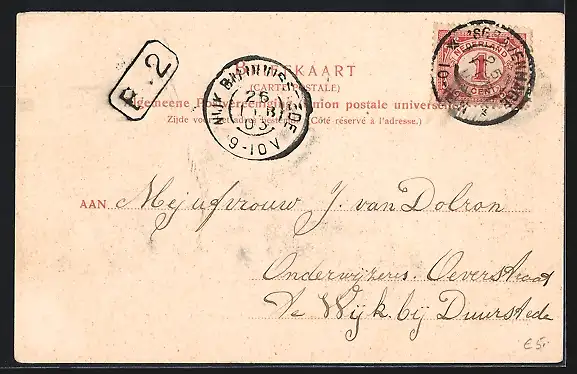 KAART
(CARTE POSTALE)
Algemeene Postvereeniging. Union postale universelle.
Zijde voor het adres bestemd. (Côté réservé à l'adresse.)
NEDERLAND
1
CENT
'S GRAVENHAGE
2
WIJK BIJ DUURSTEDE
26
FEB
03
9-10V
AAN Mejufvrouw J. van Dolron
Onderwijzeres. Oeverstraat
te Wijk bij Duurstede
€5,-